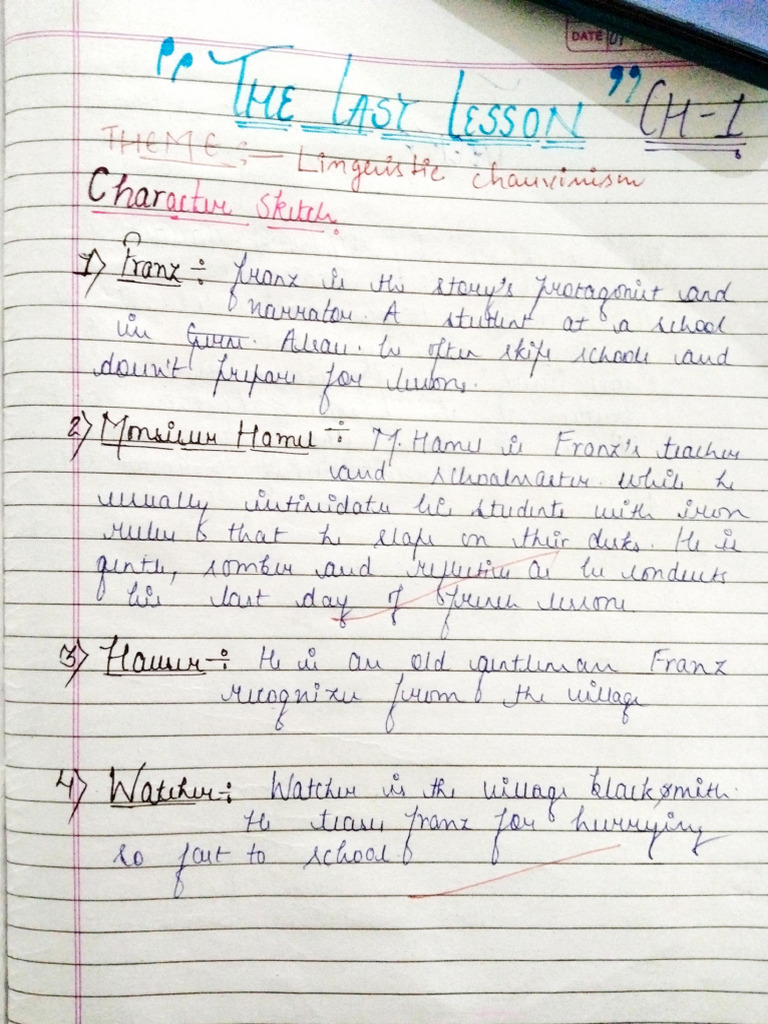 DATE 01
"The Last Lesson" CH-1
THEME :- Linguistic chauvinism
Character Sketch.
1) Franz :- franz is the story's protagonist and
narrator. A student at a school
in Alsac. he often skips schools and
doesn't prepare for lessons.
2) Monsieur Hamel :- M. Hamel is Franz's teacher
and schoolmaster. while he
usually intimidate his students with iron
ruler that he slaps on their desks. He is
gentle, somber and reflective as he conducts
his last day of french lesson.
3) Hauser :- He is an old gentleman Franz
recognizes from the village
4) Watcher :- Watcher is the village blacksmith.
He teases franz for hurrying
so fast to school